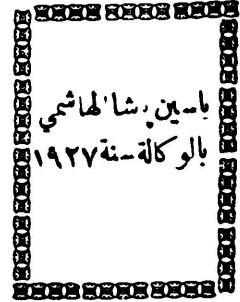 ياسين پشا الهاشمي
بالوكالة سنة ١٩٢٧